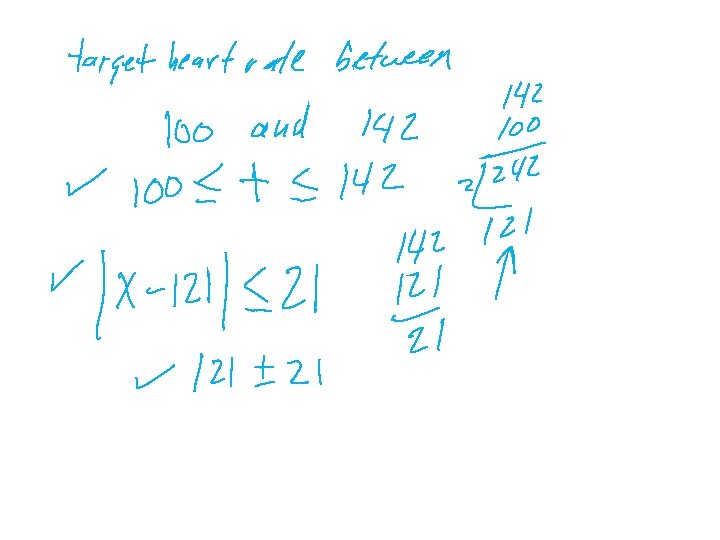 target heart rate between
100 and 142
✓ 100 ≤ t ≤ 142
✓ |x-121| ≤ 21
✓ 121 ± 21
142
100
2 242
121
↑
142
121
21